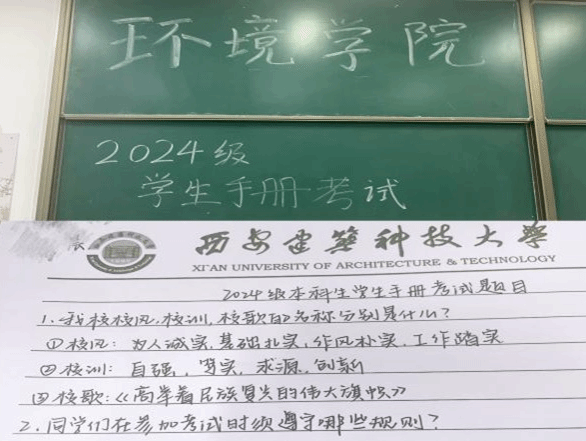 环境学院
2024级
学生手册考试
西安建筑科技大学
XI'AN UNIVERSITY OF ARCHITECTURE & TECHNOLOGY
2024级本科生学生手册考试题目
1.我校校风,校训,校歌的名称分别是什么?
①校风: 为人诚实,基础扎实,作风朴实,工作踏实
②校训: 自强,笃实,求源,创新
③校歌:《高举着民族复兴的伟大旗帜》
2.同学们在参加考试时须遵守哪些规则?